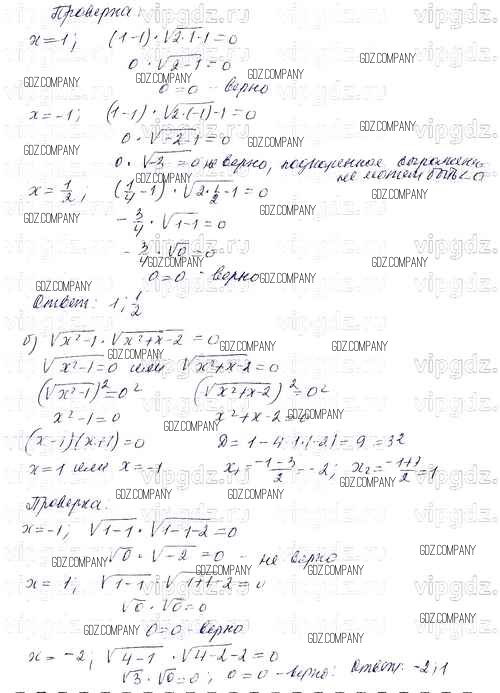 Проверка:
x=1; (1-1)·√(2·1-1)=0
0·√(2-1)=0
0=0 - верно
x=-1; (1-1)·√(2·(-1)-1)=0
0·√(-2-1)=0
0·√-3=0 не верно, подкоренное выражение
не может быть <0
x=1/2; (1/4-1)·√(2·1/2-1)=0
-3/4·√(1-1)=0
-3/4·√0=0
0=0 - верно
Ответ: 1; 1/2
б) √(x²-1)·√(x²+x-2)=0
√(x²-1)=0 или √(x²+x-2)=0
(√(x²-1))²=0² (√(x²+x-2))²=0²
x²-1=0 x²+x-2=0
(x-1)(x+1)=0 D=1-4·1·(-2)=9=3²
x=1 или x=-1 x₁=(-1-3)/2=-2; x₂=(-1+3)/2=1
Проверка:
x=-1; √(1-1)·√(1-1-2)=0
√0·√-2=0 - не верно
x=1; √(1-1)·√(1+1-2)=0
√0·√0=0
0=0 - верно
x=-2; √(4-1)·√(4-2-2)=0
√3·√0=0; 0=0 - верно. Ответ: -2; 1
vipgdz.ru
GDZ.COMPANY